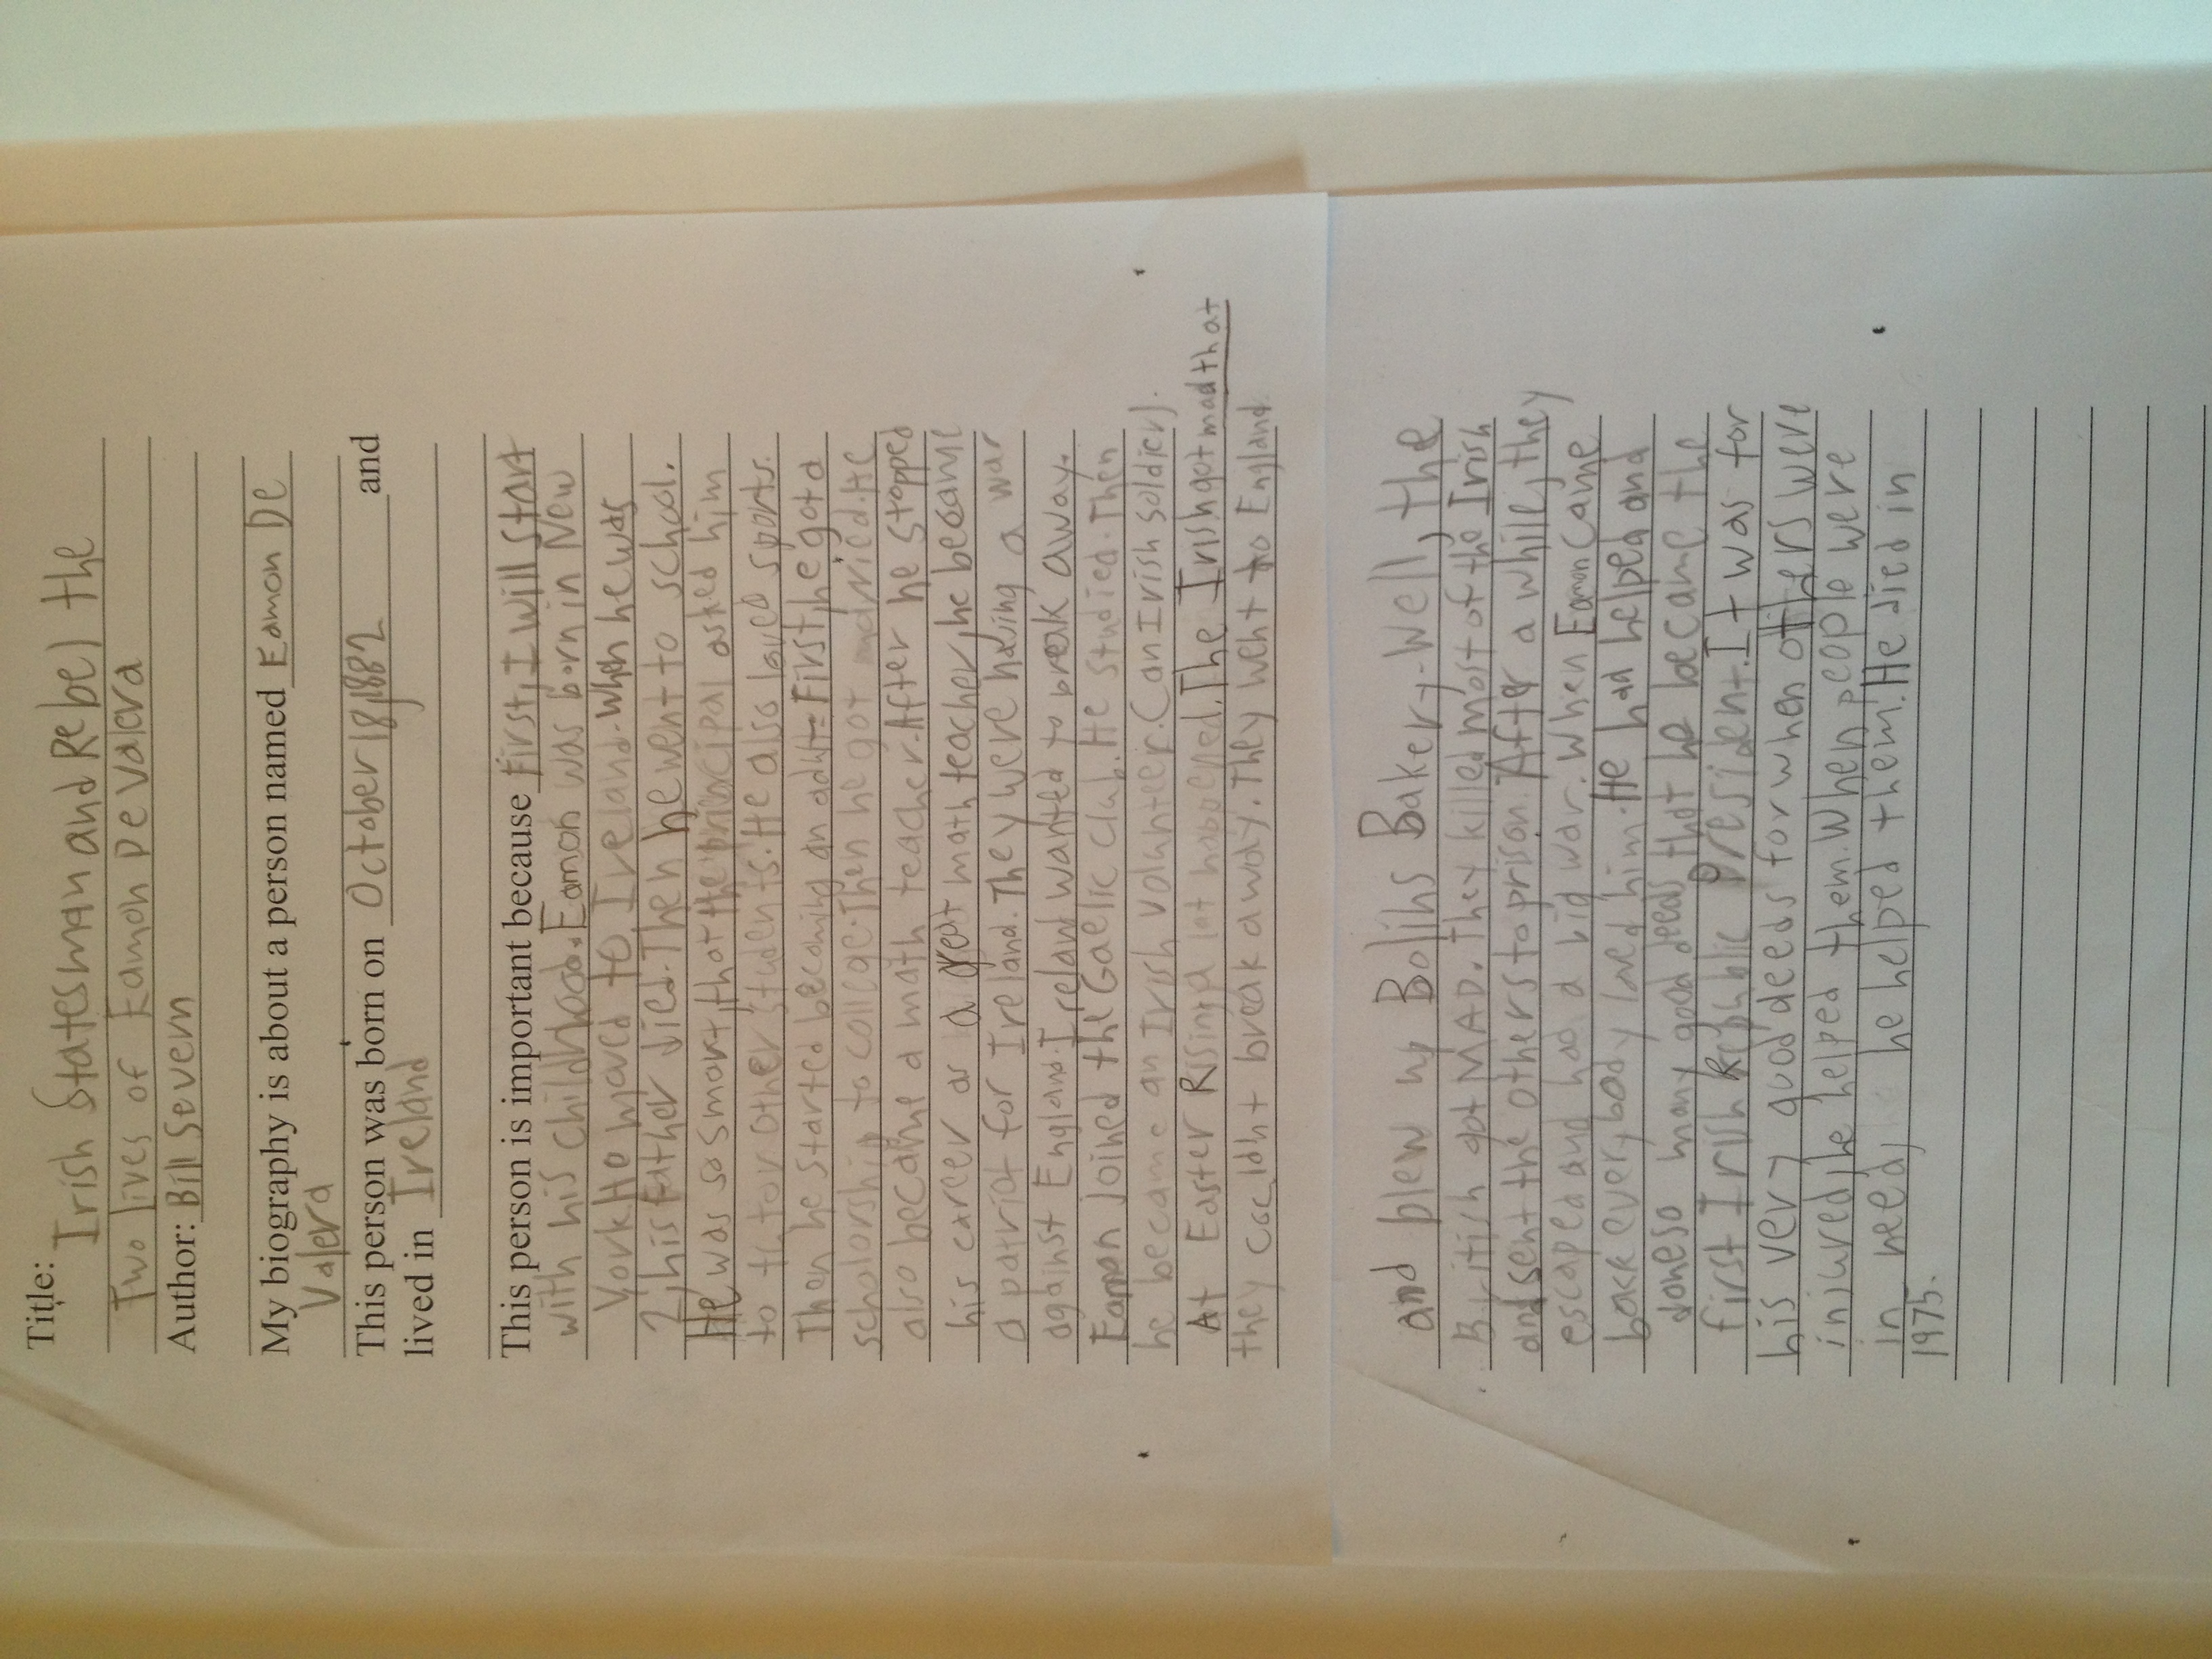 Title: Irish Statesman and Rebel the
Two lives of Eamon De Valera
Author: Bill Severn
My biography is about a person named Eamon De
Valera
This person was born on October 18, 1882 and
lived in Ireland
This person is important because First, I will start
with his childhood. Eamon was born in New
York. He moved to Ireland. When he was
2, his father died. Then he went to school.
He was so smart, that the principal asked him
to tutor other students. He also loved sports.
Then he started becoming an adult. First, he got a
scholorship to college. Then he got married. He
also became a math teacher. After he stopped
his career as a great math teacher, he became
a patriot for Ireland. They were having a war
against England. Ireland wanted to break away.
Eamon joined the Gaelic club. He studied. Then
he became an Irish Volunteer. (an Irish soldier).
At Easter Rising a lot happened. The Irish got mad that
they couldn't break away. They went to England
and blew up Bolins Bakery-well, the
British got MAD. They killed most of the Irish
and sent the others to prison. After a while, they
escaped and had a big war. When Eamon came
back everybody loved him. He had helped and
done so many good deeds that he became the
first Irish Republic President. It was for
his very good deeds for when others were
injured, he helped them. When people were
in need, he helped them. He died in
1975.